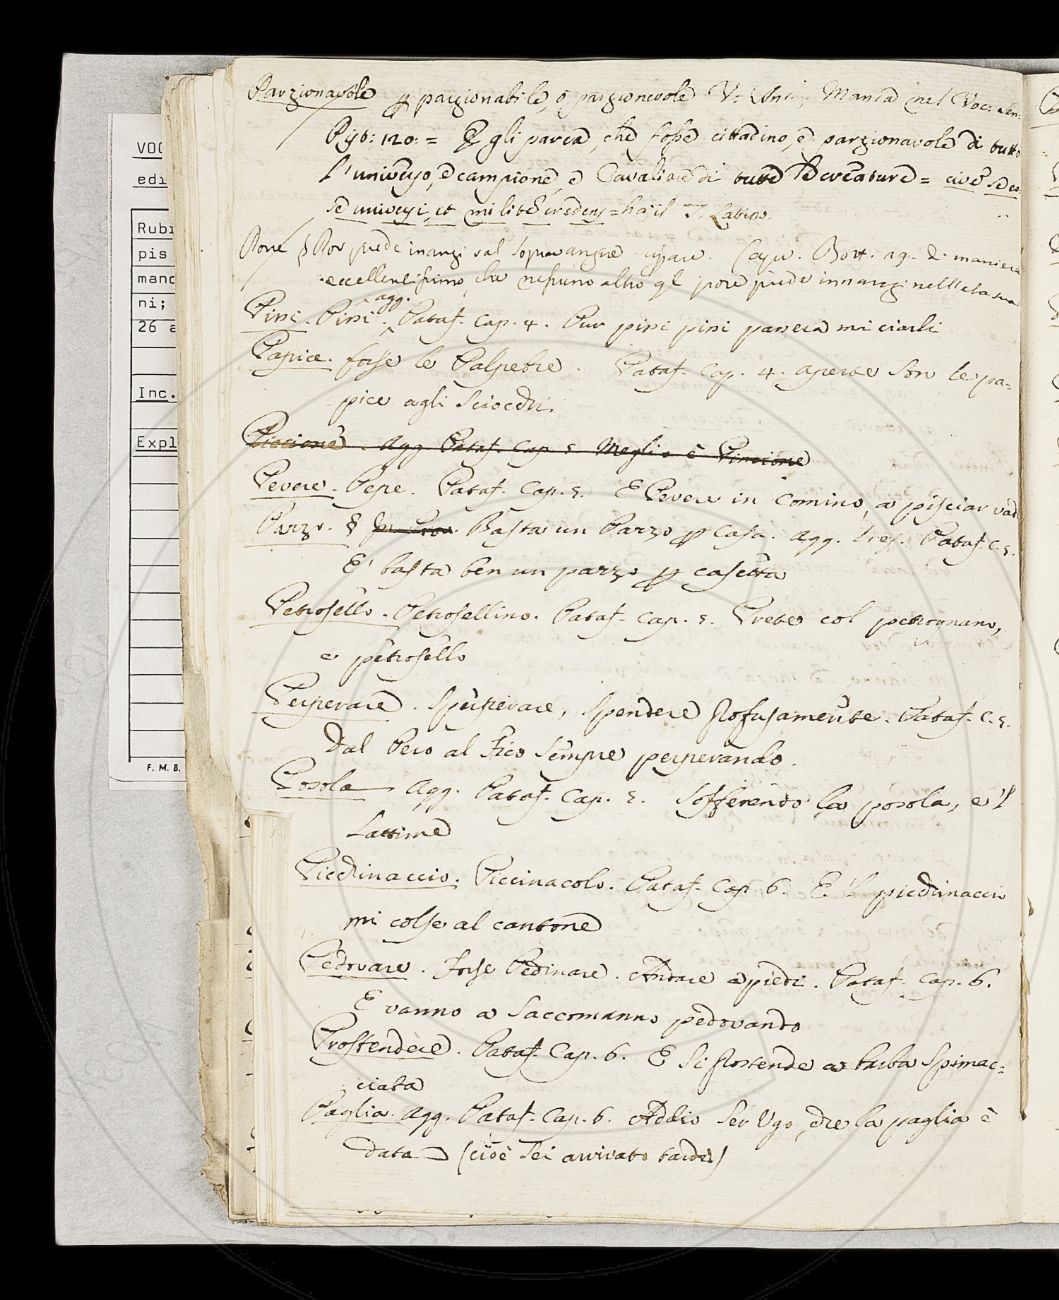 Parzionavole per parzionabile, o parzionevole V: Manca nel Voc:
120: = E gli parea, che fosse cittadino, e parzionavole di tutto
l'universo, e campione, e Cavaliere di tutte le creature = cioè
universi, et credens = ha il T. Latino.
Porre § Por piede inanzi di maniera
eccellentissimo, che nessuno altro gl pore piede innanzi
Pissi. Pissi agg. Pataf. Cap. 4. Pur pissi pissi pareva mi ciarli
Papice. forse le Palpebre. Pataf. Cap. 4. aperse son le pa=
pice agli sciocchi.
Piccione. Agg. Pataf. Cap. 5. Meglio è Pincione
Pevere. Pepe. Pataf. Cap. 5. E Pevere in Comino, a pisciar
Pazzo. § Basta un Pazzo per Casa. agg. Pataf. C. 5.
E' basta ben un pazzo per casetta
Petrosello. Petrosellino. Pataf. Cap. 5. col petrognano,
e petrosello
Perperare. Sperperare, Spendere profusamente. Pataf. C. 5.
Dal Pero al Fico sempre perperando.
Posola agg. Pataf. Cap. 5. Sofferendo la posola, e 'l
Lattime
Picchinaccio. Piccinacolo. Pataf. Cap. 6. E 'l picchinaccio
mi colse al cantone
Pedovare. Forse Pedinare. Andare a piedi. Pataf. Cap. 6.
E vanno a Saccomanno pedovando
Prostendere. Pataf. Cap. 6. E si prostende a barba Spimac=
ciata
Paglia. agg. Pataf. Cap. 6. Addio Ser Ugo, che la paglia è
data (cioè sei arrivato tardi)
VOC
edi
Rub
pis
mand
ni;
26
Inc.
Expl
F. M. B.